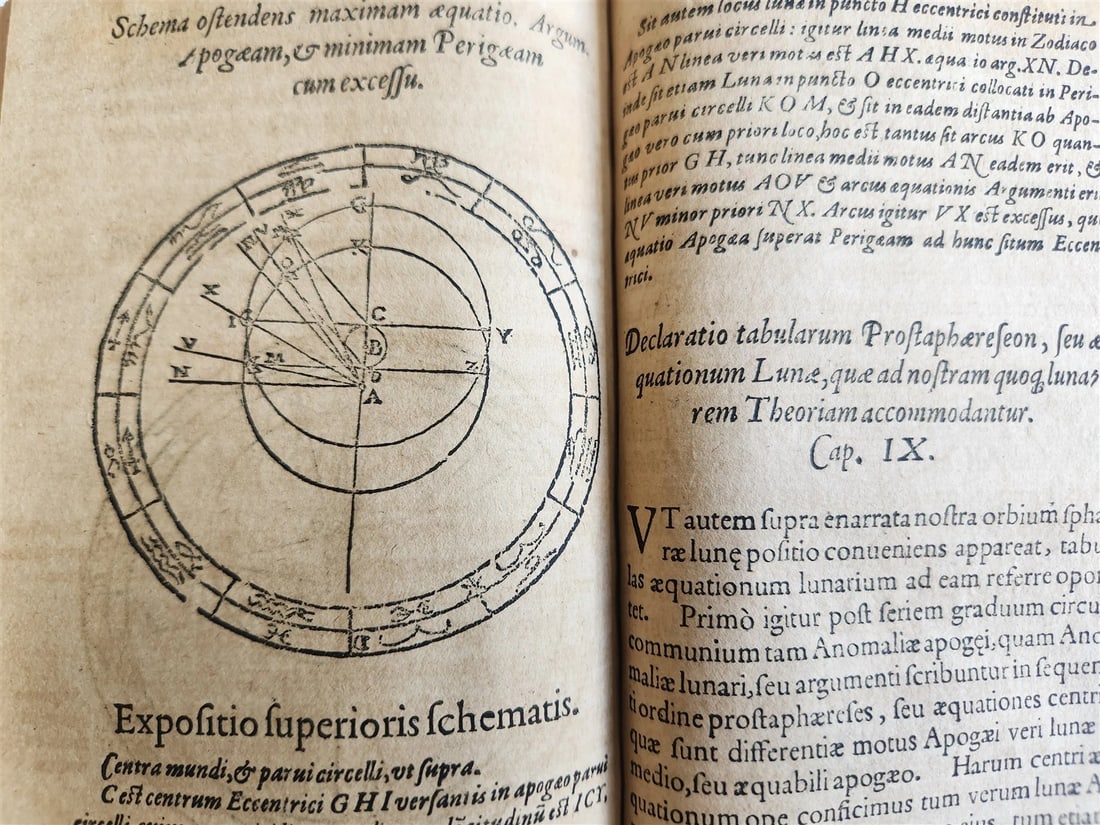 Schema oſtendens maximam æquatio. Argum.
Apogæam, & minimam Perigæam
cum exceſſu.
G
K
H
O
X
I
C
Y
B
V
M
D
Z
N
A
Expoſitio ſuperioris ſchematis.
Centra mundi, & parui circelli, vt ſupra.
C eſt centrum Eccentrici G H I verſantis in apogæo parui
eſt I C Y,
Sit autem locus lunæ in puncto H eccentrici conſtituti in
Apogæo parui circelli : igitur linea medii motus in Zodiaco
eſt A N linea veri motus eſt A H X. æqua io arg. XN. De-
inde ſit etiam Luna in puncto O eccentrici collocati in Peri-
gæo parui circelli K O M, & ſit in eadem diſtantia ab Apo-
gæo vero cum priori loco, hoc eſt tantus ſit arcus K O quan-
tus prior G H, tunc linea medii motus A N eadem erit, &
linea veri motus A O V & arcus æquationis Argumenti eri
N V minor priori N X. Arcus igitur V X eſt exceſſus, qu
æquatio Apogæa ſuperat Perigæam ad hunc ſitum Eccen
trici.
Declaratio tabularum Proſtaphæreſeon, ſeu æ
quationum Lunæ, quæ ad noſtram quoq; luna
rem Theoriam accommodantur.
Cap. IX.
VT autem ſupra enarrata noſtra orbium ſphæ
ræ lunę poſitio conueniens appareat, tabu
las æquationum lunarium ad eam referre opor
tet. Primò igitur poſt ſeriem graduum circu
communium tam Anomaliæ apogęi, quam Ano
maliæ lunari, ſeu argumenti ſcribuntur in ſequen
ti ordine proſtaphæreſes, ſeu æquationes centri
quæ ſunt differentiæ motus Apogæi veri lunæ
medio, ſeu æquabili apogæo. Harum centri æ
quationum ope conficimus tum verum lunæ A
tum etiat